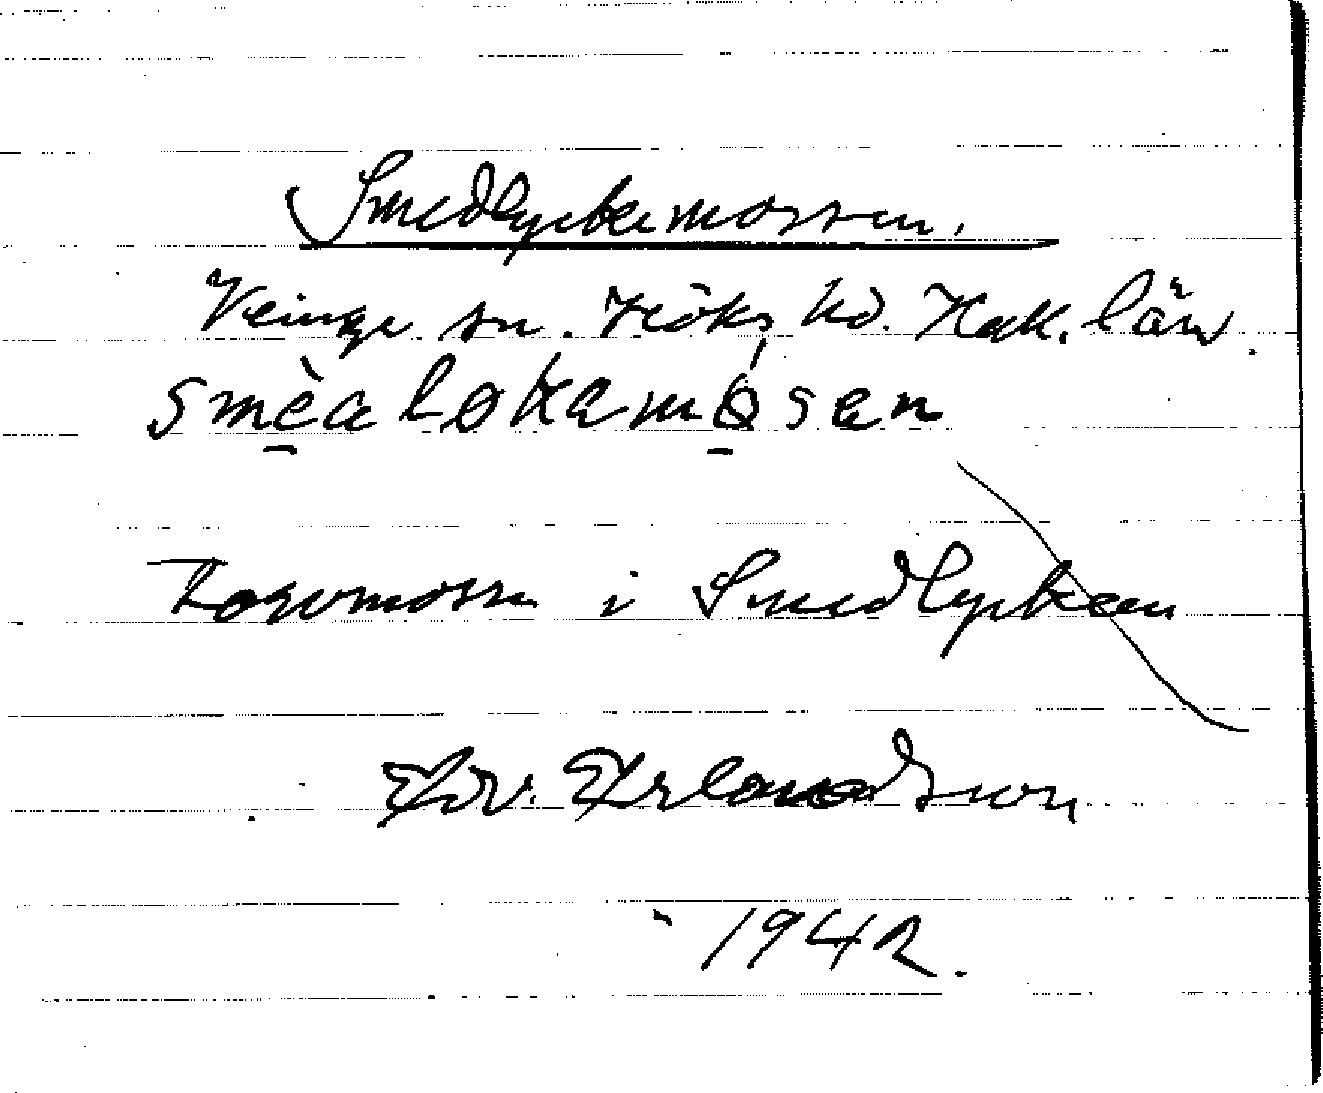 Smedlyckemossen.
Veinge sn. Höks hd. Hall. län.
smèaløkamósen
Torvmosse i Smedlycken
Edv. Erlandsson
1942.